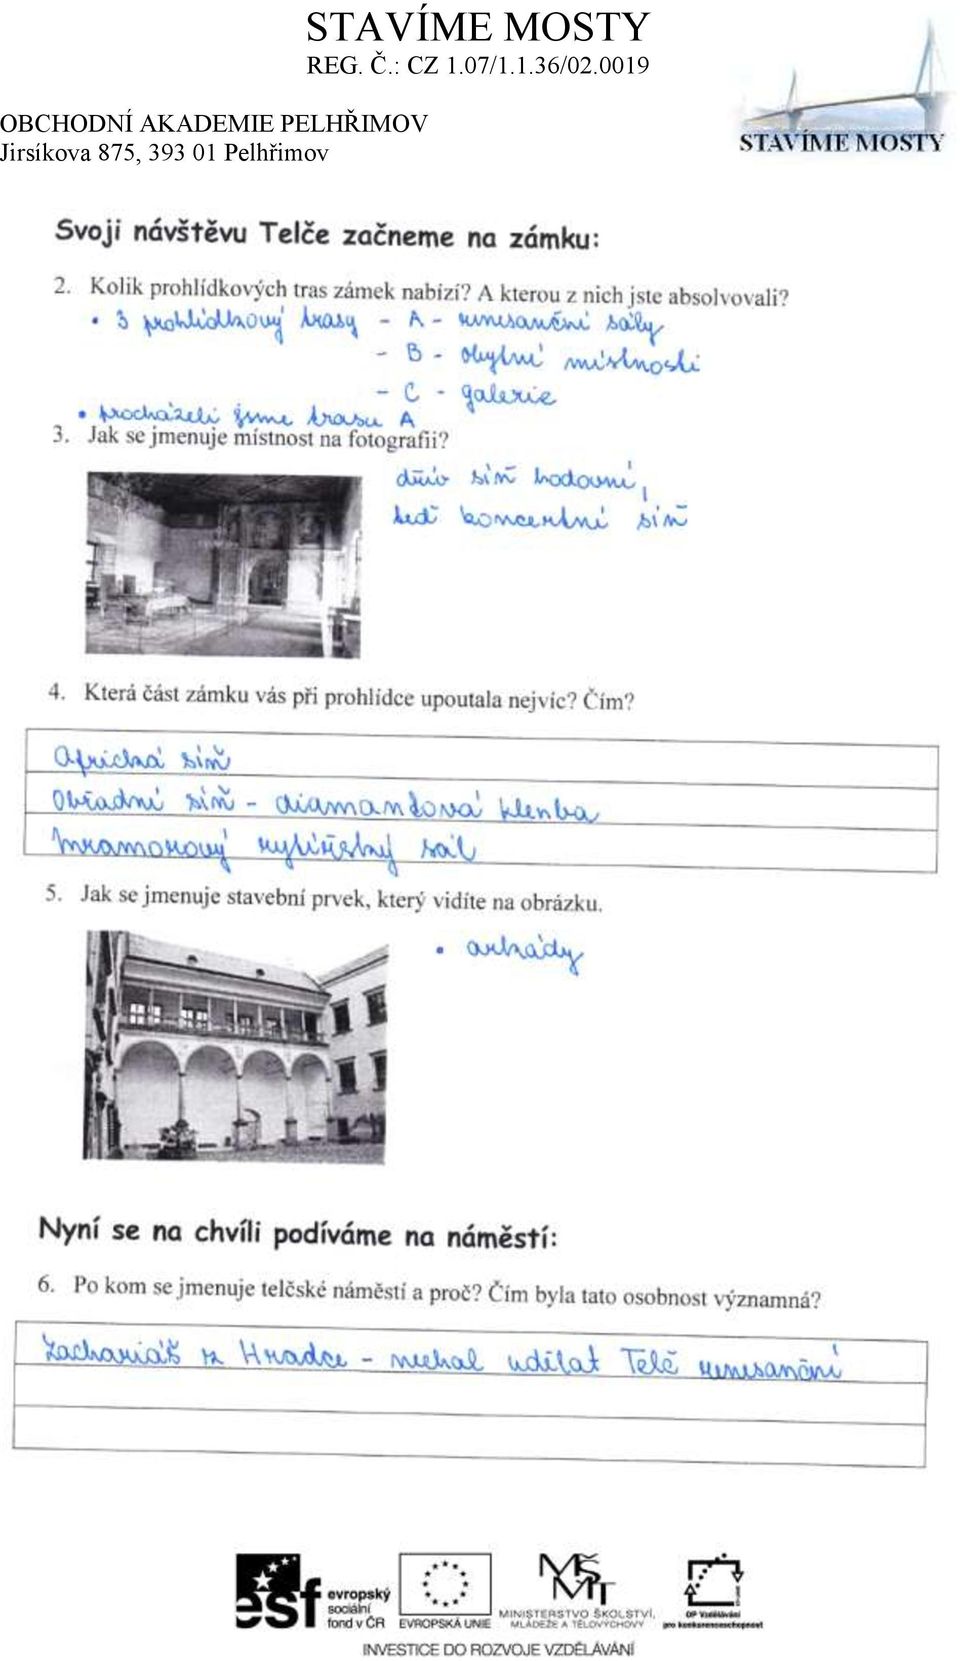 STAVÍME MOSTY
REG. Č.: CZ 1.07/1.1.36/02.0019
OBCHODNÍ AKADEMIE PELHŘIMOV
Jirsíkova 875, 393 01 Pelhřimov
STAVÍME MOSTY
Svoji návštěvu Telče začneme na zámku:
2. Kolik prohlídkových tras zámek nabízí? A kterou z nich jste absolvovali?
• 3 prohlídkový trasy - A - renesanční sály
- B - obytní místnosti
- C - galerie
• procházeli jsme trasu A
3. Jak se jmenuje místnost na fotografii?
dřív síň hodovní,
teď koncertní síň
4. Která část zámku vás při prohlídce upoutala nejvíc? Čím?
Africká síň
Obřadní síň - diamandová klenba
Mramorový rytířský sál
5. Jak se jmenuje stavební prvek, který vidíte na obrázku.
• arkády
Nyní se na chvíli podíváme na náměstí:
6. Po kom se jmenuje telčské náměstí a proč? Čím byla tato osobnost významná?
Zachariáš z Hradce - nechal udělat Telč renesanční
esf evropský sociální fond v ČR
EVROPSKÁ UNIE
MINISTERSTVO ŠKOLSTVÍ, MLÁDEŽE A TĚLOVÝCHOVY
OP Vzdělávání pro konkurenceschopnost
INVESTICE DO ROZVOJE VZDĚLÁVÁNÍ